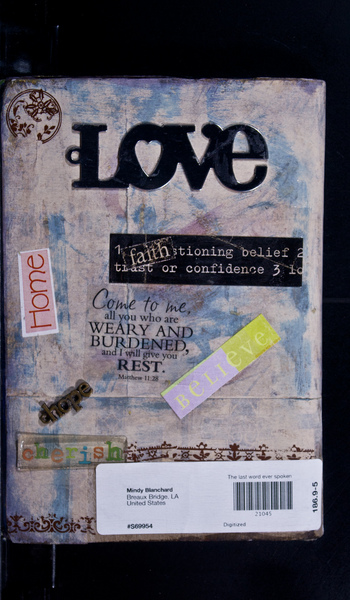 LOVE
faith
1 stioning belief 2
trust or confidence 3 lo
Home
Come to me,
all you who are
WEARY AND
BURDENED,
and I will give you
REST.
Matthew 11:28
BELIEVE
hope
cherish
The last word ever spoken
Mindy Blanchard
Breaux Bridge, LA
United States
21045
#S69954
Digitized
186.9-5